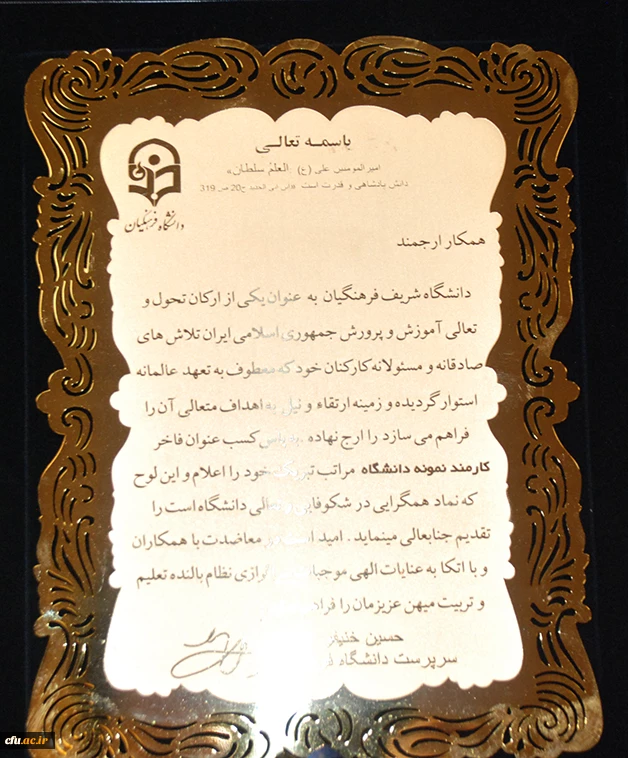 باسمه تعالی
امیرالمومنین علی (ع) العلم سلطان»
دانش پادشاهی و قدرت است «ابن ابی الحدید ج20 ص 319
دانشگاه فرهنگیان
همکار ارجمند
دانشگاه شریف فرهنگیان به عنوان یکی از ارکان تحول و
تعالی آموزش و پرورش جمهوری اسلامی ایران تلاش های
صادقانه و مسئولانه کارکنان خود که معطوف به تعهد عالمانه
استوار گردیده و زمینه ارتقاء و نیل به اهداف متعالی آن را
فراهم می سازد را ارج نهاده کسب عنوان فاخر
کارمند نمونه دانشگاه مراتب خود را اعلام و این لوح
که نماد همگرایی در شکوفایی دانشگاه است را
تقدیم جنابعالی مینماید . امید معاضدت با همکاران
و با اتکا به عنایات الهی نظام بالنده تعلیم
و تربیت میهن عزیزمان را
حسین
سرپرست دانشگاه
cfu.ac.ir